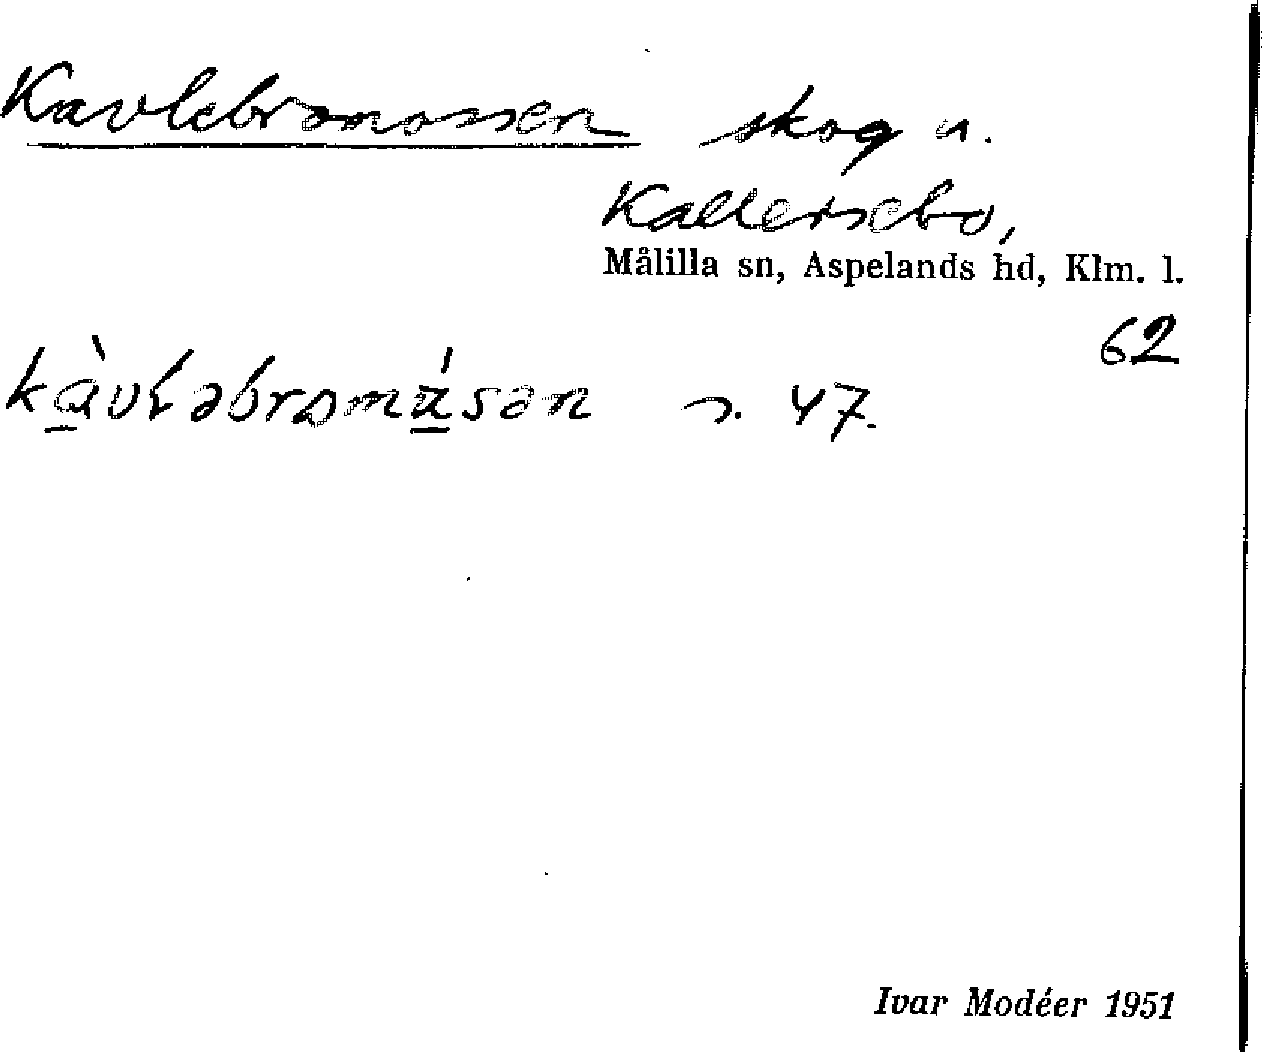 Kavlebromossen skog u.
Kallersebo,
Målilla sn, Aspelands hd, Klm. l.
62
s. 47.
Ivar Modéer 1951